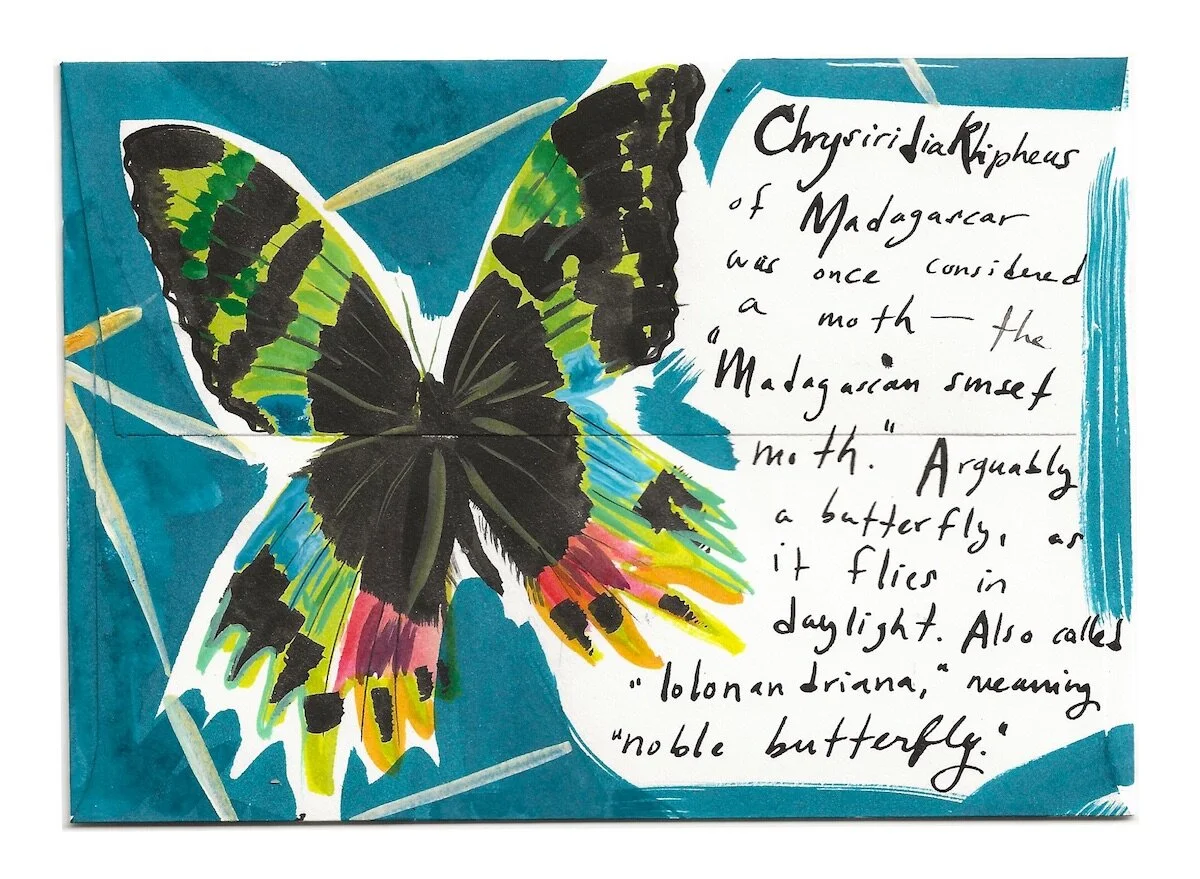 Chrysiridia Rhipheus
of Madagascar
was once considered
a moth — the
"Madagascan sunset
moth." Arguably
a butterfly, as
it flies in
daylight. Also called
"lolonandriana," meaning
"noble butterfly."